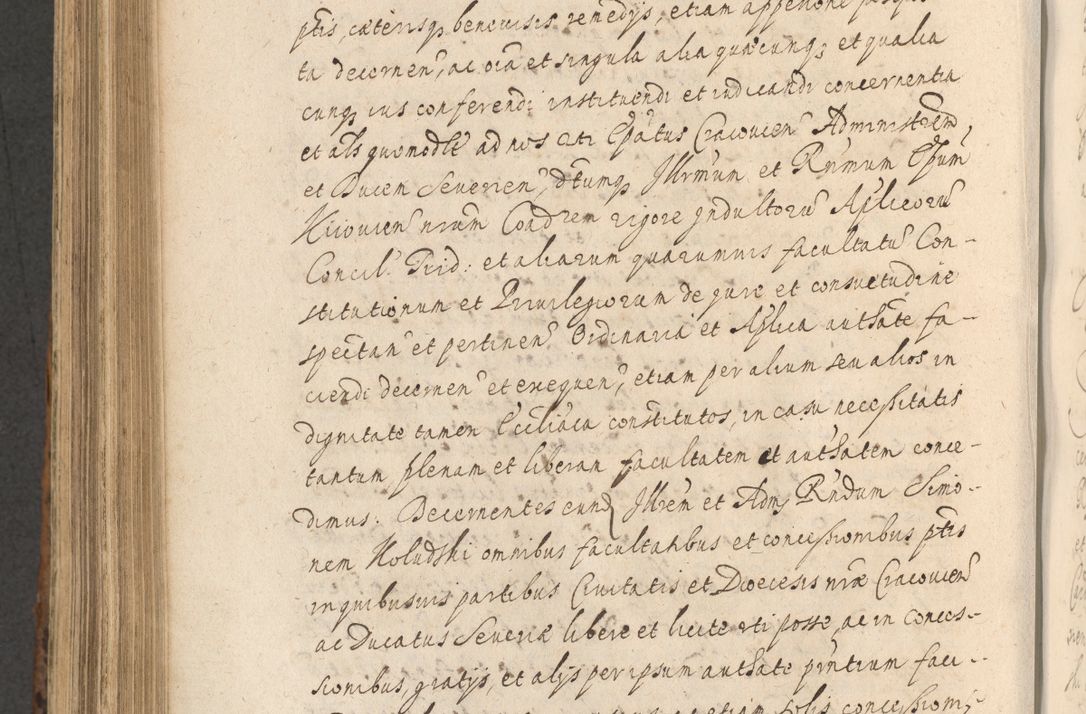 ptis, caeterisq, benevisis remedijs, etiam appeñone
ta decernen̄, ac oīa et singula alia quæcunq, et qualia
cunq, ius conferendi instituendi et iudicandi concernentia
et als quomodlt ad nos uti Eṗatus Cracovien̄ Administrem
et Ducem Severien̄, dtumq, Illrm̄um et Rn̄mum Epum̄
Kiiovien̄ nrum̄ Coadrem̄ vigore Indultorū Aplicorū
Concil. Trid: et aliarum quarumvis facultatū Con-
stitutionum et Privilegiorum de jure et consvetudine
spectan̄ et pertinen̄ Ordinariā et Aplica authāte fa-
ciendi decernen̄ et exequen̄, etiam per alium seu alios in
dignitate tamen Ecclīaca constitutos, in casu necessitatis
tantum plenam et liberam facultatem et authātem conce-
dimus. Decernentes eund Illrem̄ et Adm̄ Rn̄dum Simo-
nem Koludzki omnibus facultatibus et concessionibus ptīs
in quibusvis partibus Civitatis et Dioecesis nrāe Cracovien̄
ac Ducatus Severiæ libere et licite uti posse, ac in conces-
sionibus, gratijs, et alijs per ipsum authāte pn̄tium faci-
etiam solis concessioni,